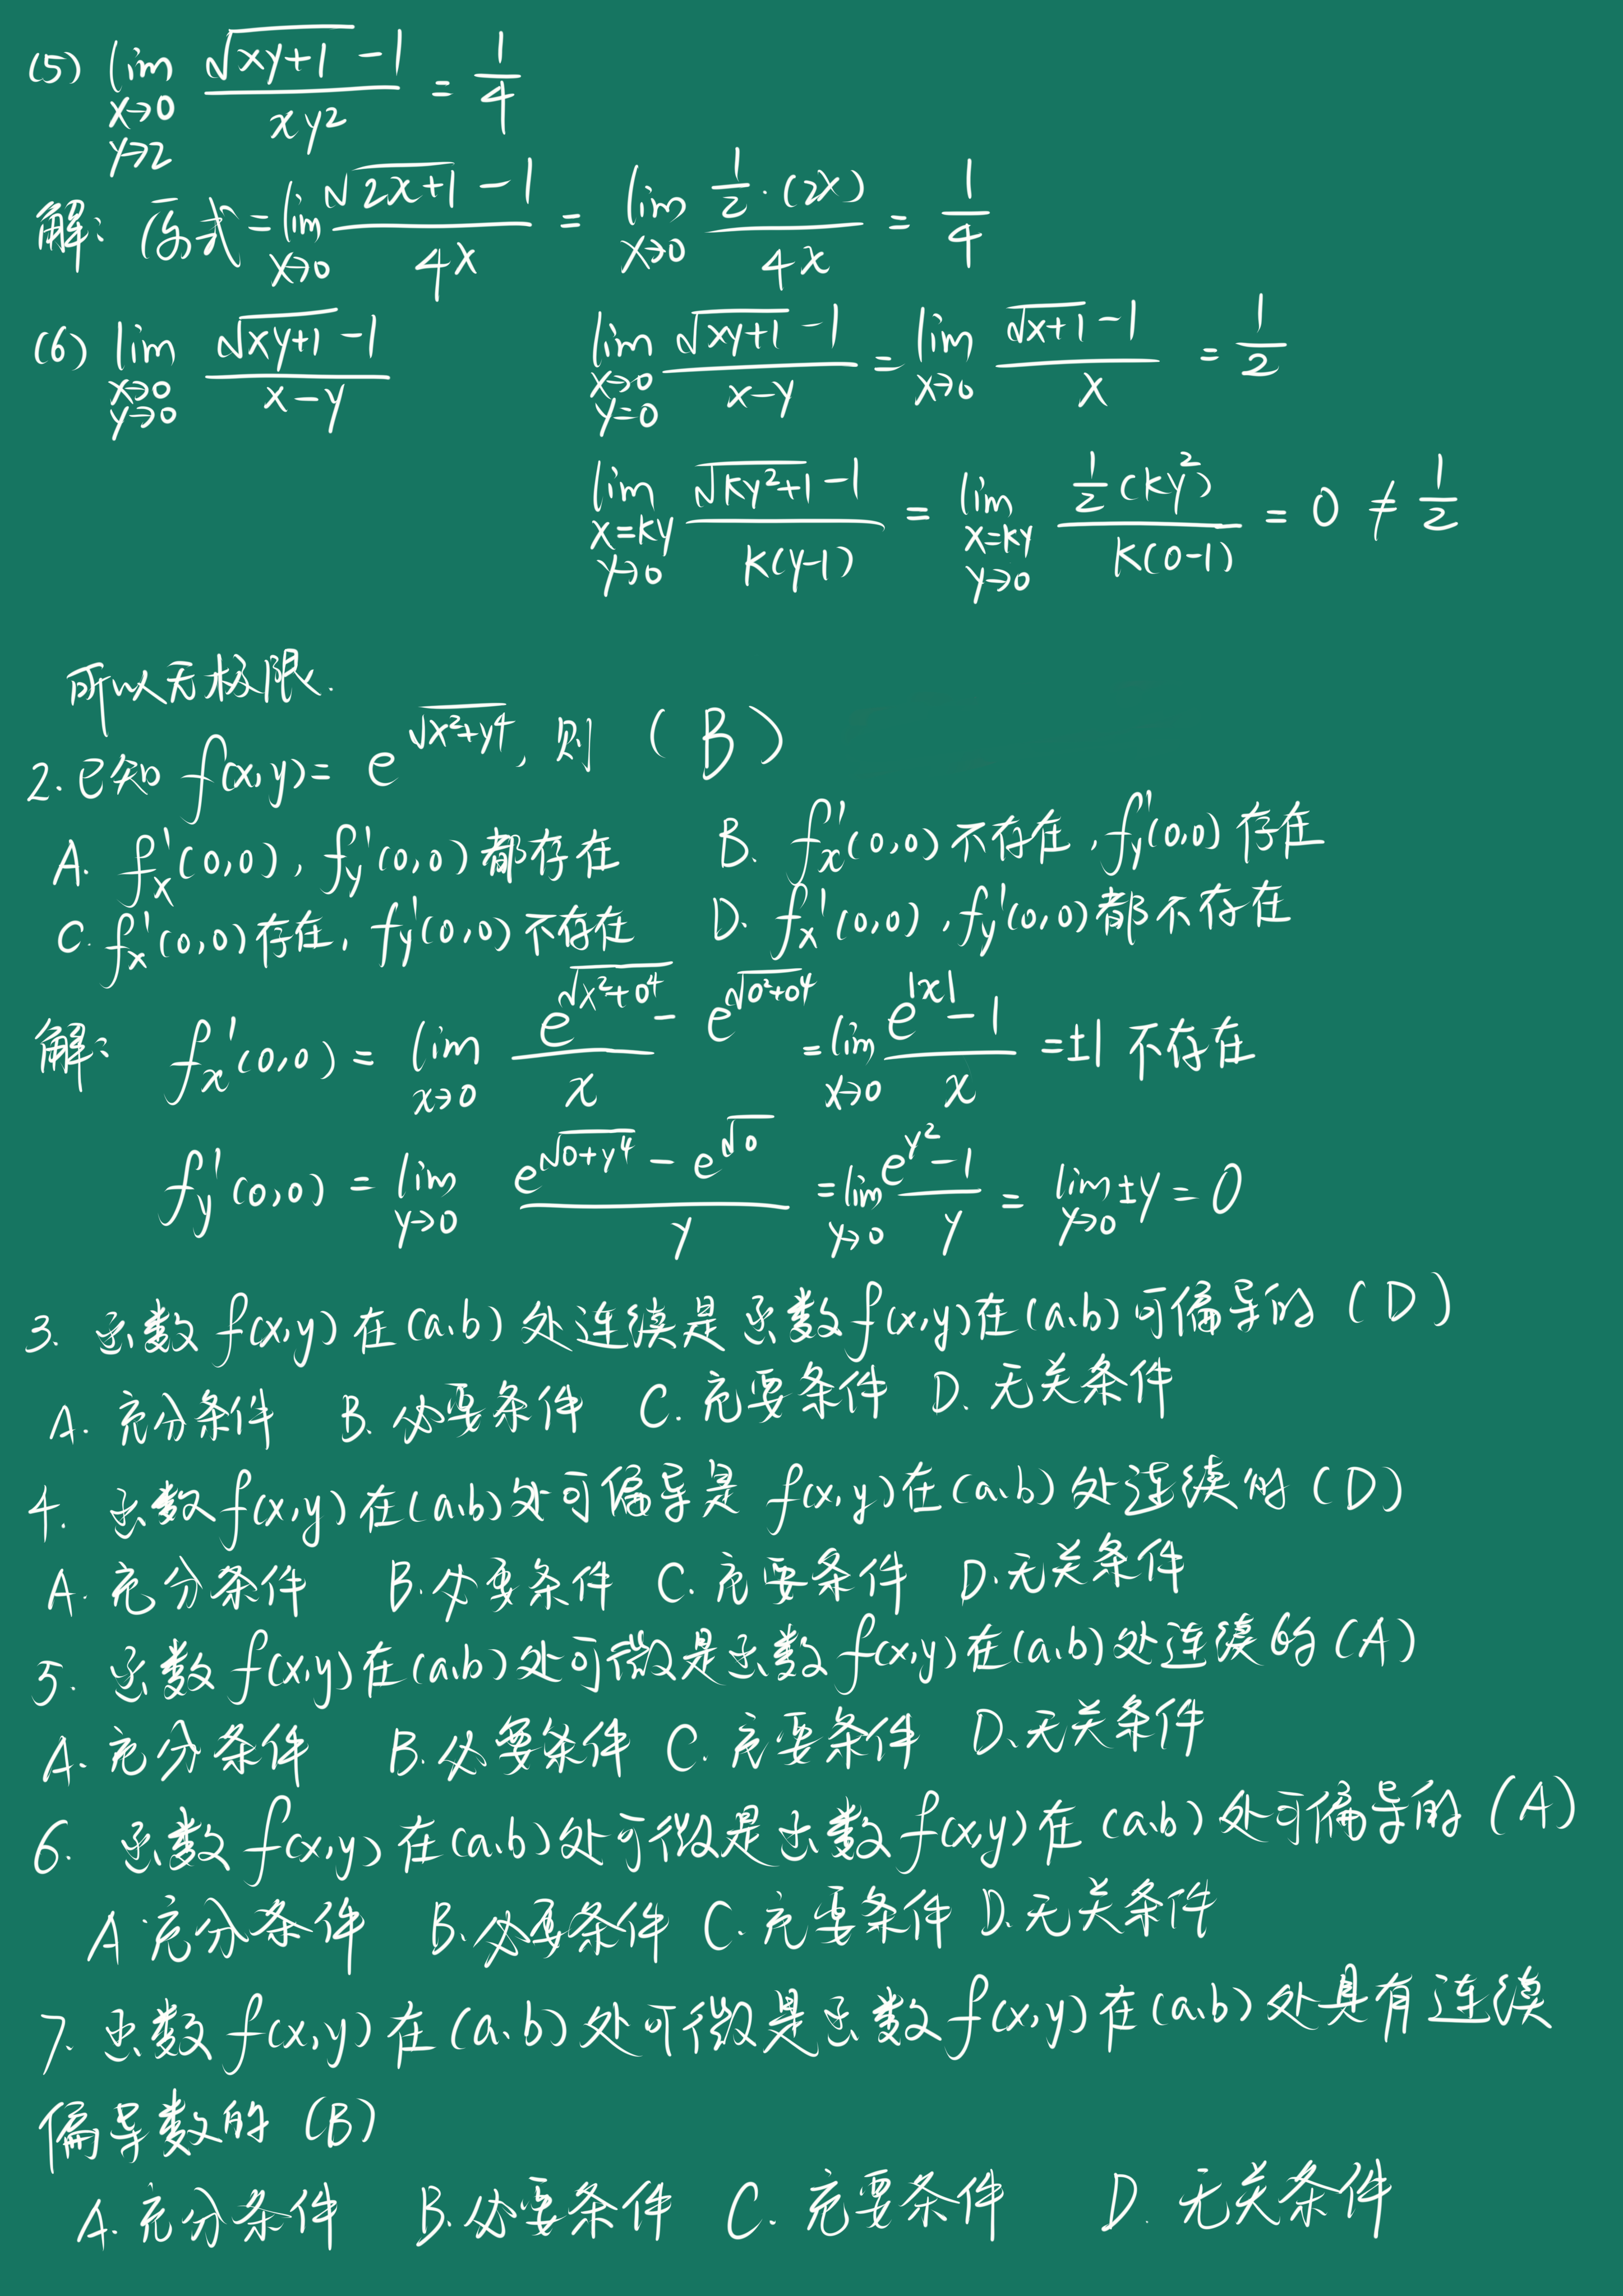 (5) lim x→0 y→2 (√(xy+1) -1)/(xy²) = 1/4
解: 原式 = lim x→0 (√(2x+1) -1)/(4x) = lim x→0 (1/2·(2x))/(4x) = 1/4
(6) lim x→0 y→0 (√(xy+1) -1)/(x-y) lim x→0 y=0 (√(xy+1) -1)/(x-y) = lim x→0 (√(x+1) -1)/x = 1/2
lim x=ky y→0 (√(ky²+1) -1)/(k(y-1)) = lim x=ky y→0 (1/2(ky²))/(k(0-1)) = 0 ≠ 1/2
所以无极限.
2. 已知 f(x,y)= e^√(x²+y⁴), 则 (B)
A. fx'(0,0), fy'(0,0)都存在 B. fx'(0,0)不存在, fy'(0,0)存在
C. fx'(0,0)存在, fy'(0,0)不存在 D. fx'(0,0), fy'(0,0)都不存在
解: fx'(0,0) = lim x→0 (e^√(x²+0⁴) - e^√(0²+0⁴))/x = lim x→0 (e^|x| -1)/x = ±1 不存在
fy'(0,0) = lim y→0 (e^√(0+y⁴) - e^√0)/y = lim y→0 (e^y² -1)/y = lim y→0 ±y = 0
3. 函数 f(x,y) 在(a,b) 处连续是函数 f(x,y)在(a,b)可偏导的 (D)
A. 充分条件 B. 必要条件 C. 充要条件 D. 无关条件
4. 函数 f(x,y)在(a,b)处可偏导是 f(x,y)在(a,b)处连续的 (D)
A. 充分条件 B. 必要条件 C. 充要条件 D. 无关条件
5. 函数 f(x,y)在(a,b)处可微是函数 f(x,y)在(a,b)处连续的 (A)
A. 充分条件 B. 必要条件 C. 充要条件 D. 无关条件
6. 函数 f(x,y) 在(a,b)处可微是函数 f(x,y)在(a,b)处可偏导的 (A)
A. 充分条件 B. 必要条件 C. 充要条件 D. 无关条件
7. 函数 f(x,y)在(a,b)处可微是函数 f(x,y)在(a,b)处具有连续
偏导数的 (B)
A. 充分条件 B. 必要条件 C. 充要条件 D. 无关条件